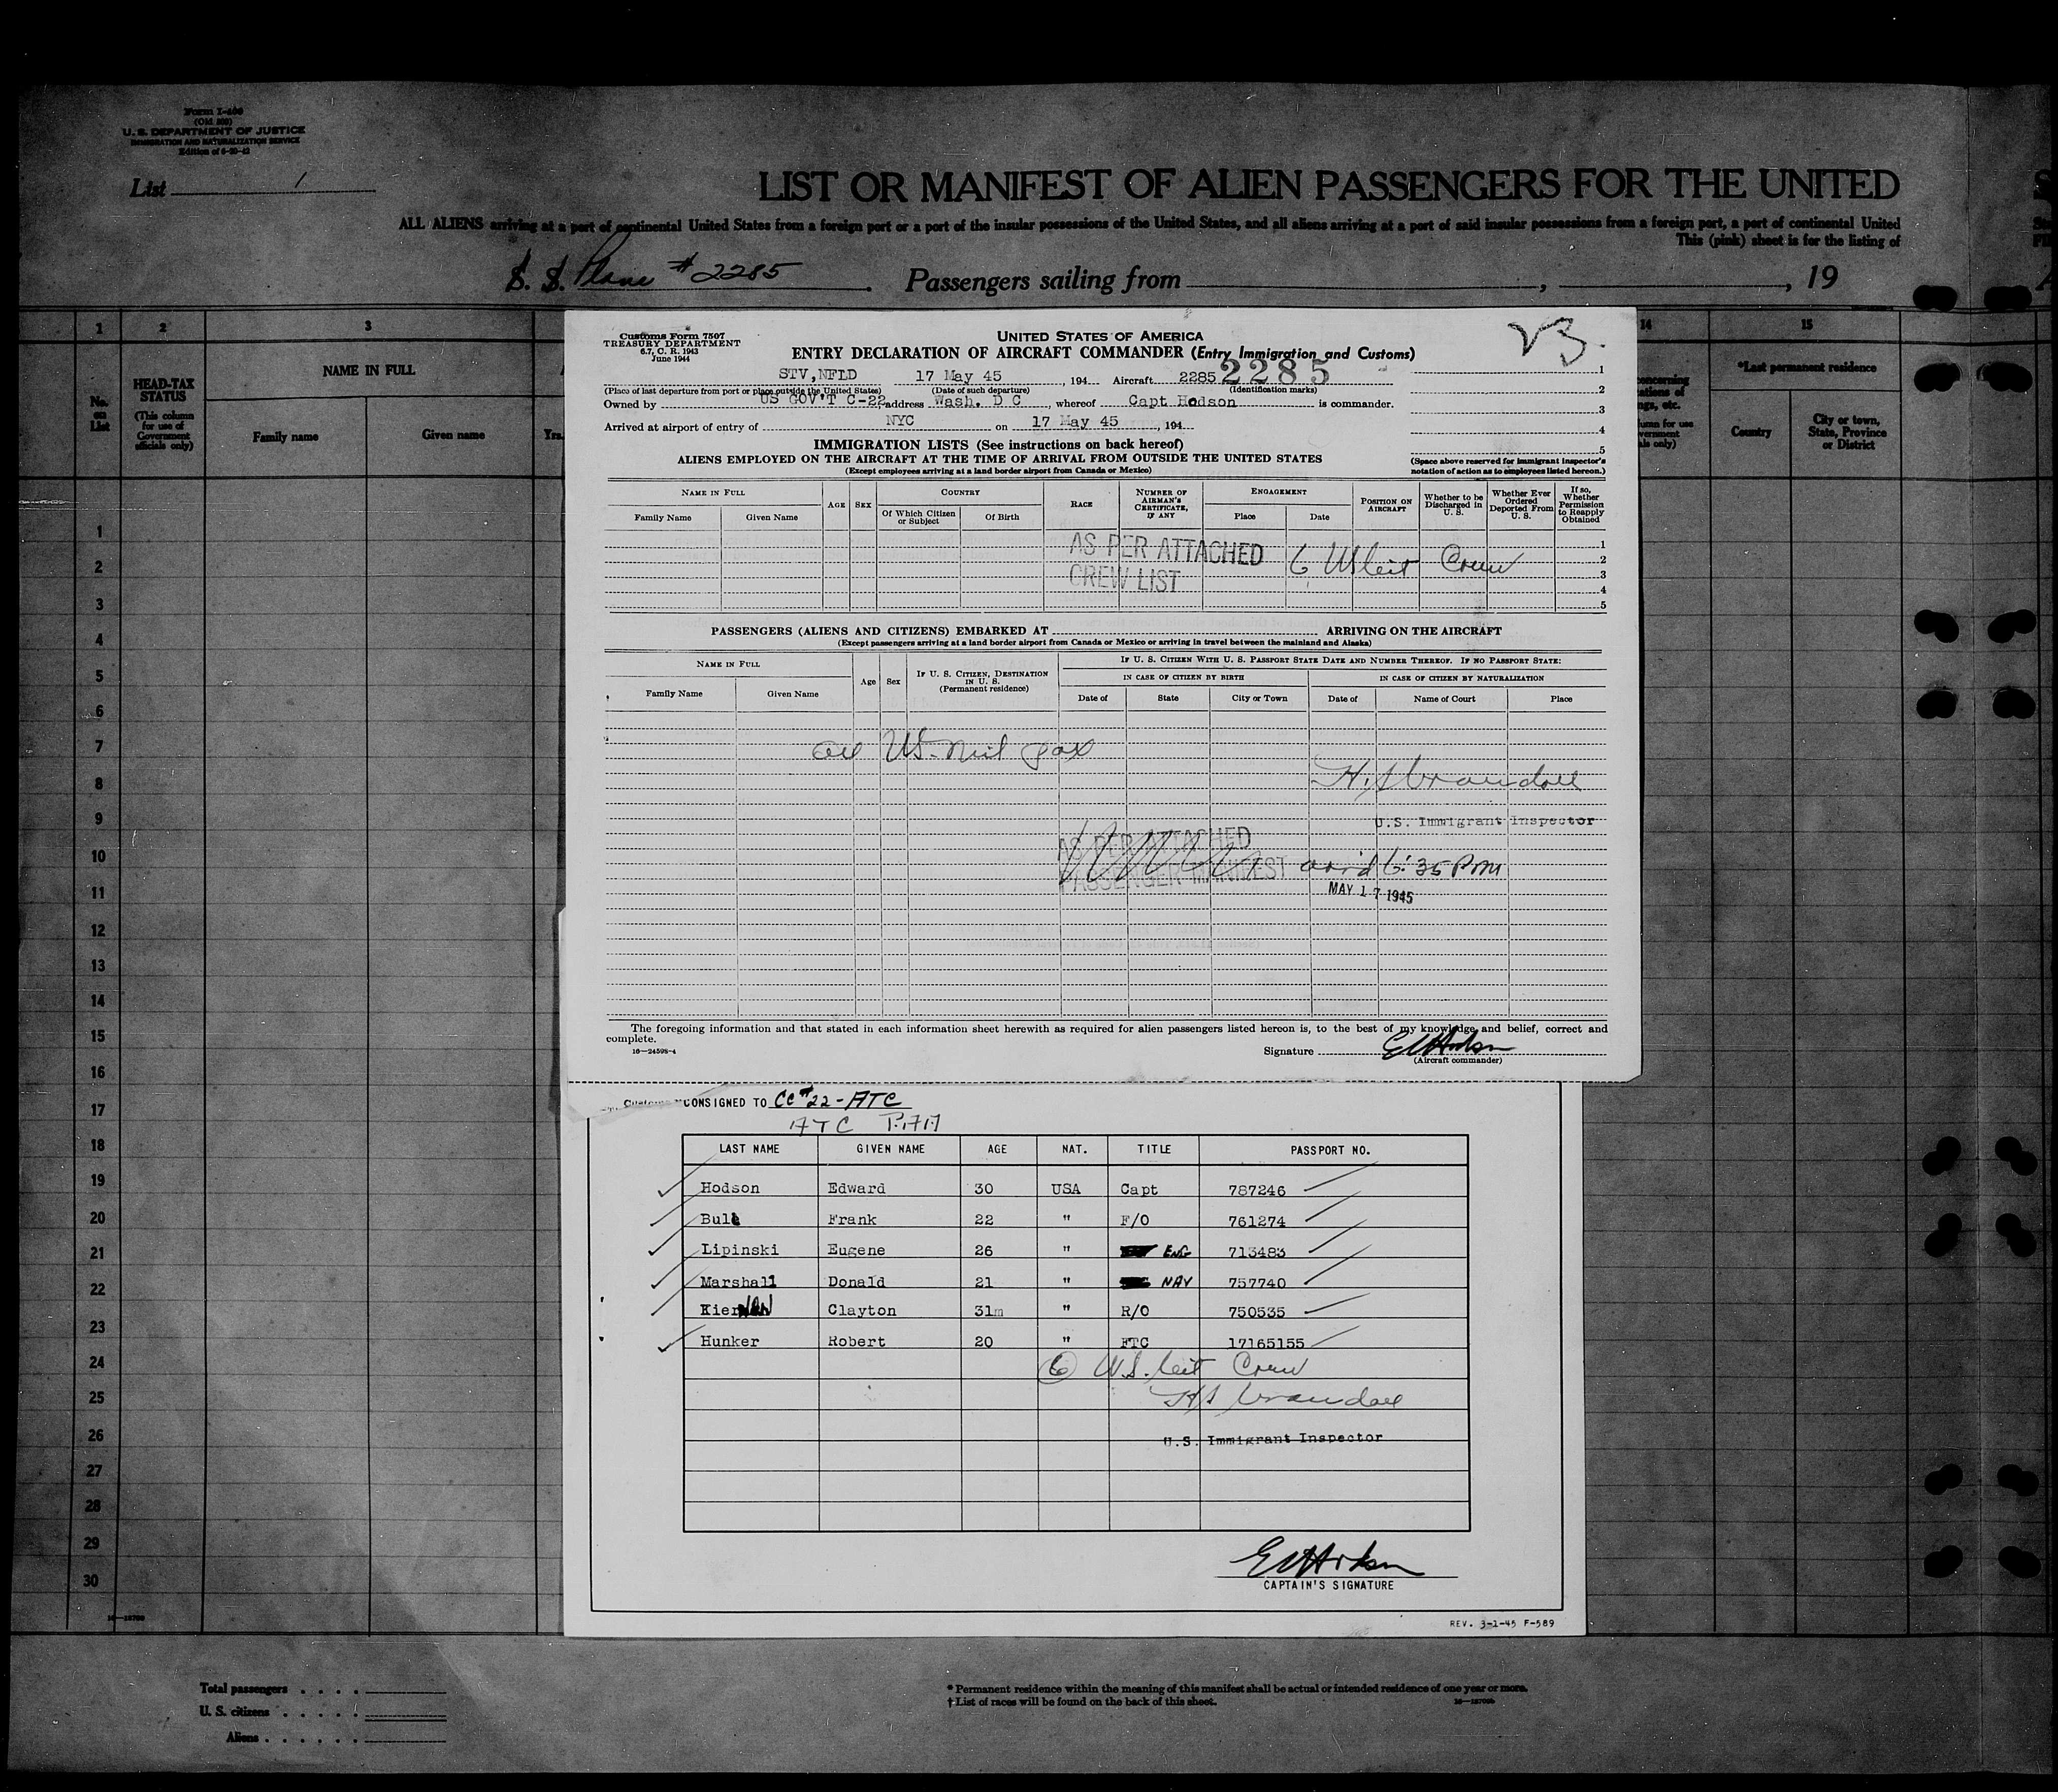 Form I-400
(Old 500)
U. S. DEPARTMENT OF JUSTICE
IMMIGRATION AND NATURALIZATION SERVICE
Edition of 6-20-42
List 1
LIST OR MANIFEST OF ALIEN PASSENGERS FOR THE UNITED
ALL ALIENS arriving at a port of continental United States from a foreign port or a port of the insular possessions of the United States, and all aliens arriving at a port of said insular possessions from a foreign port, a port of continental United
This (pink) sheet is for the listing of
S. S. Plane # 2285. Passengers sailing from , , 19
1 2 3 14 15
No. on List
HEAD-TAX STATUS
(This column for use of Government officials only)
NAME IN FULL
Family name Given name Yrs.
*Last permanent residence
Country
City or town, State, Province or District
Customs Form 7507
TREASURY DEPARTMENT
6.7, C. R. 1943
June 1944
UNITED STATES OF AMERICA
ENTRY DECLARATION OF AIRCRAFT COMMANDER (Entry Immigration and Customs)
STV,NFLD 17 May 45, 194 Aircraft 2285 2285
(Place of last departure from port or place outside the United States) (Date of such departure) (Identification marks)
Owned by US GOV'T C-22, address Wash. D C, whereof Capt Hodson is commander.
Arrived at airport of entry of NYC on 17 May 45, 194
1
2
3
4
5
(Space above reserved for immigrant inspector's notation of action as to employees listed hereon.)
IMMIGRATION LISTS (See instructions on back hereof)
ALIENS EMPLOYED ON THE AIRCRAFT AT THE TIME OF ARRIVAL FROM OUTSIDE THE UNITED STATES
(Except employees arriving at a land border airport from Canada or Mexico)
NAME IN FULL
Family Name Given Name
AGE SEX
COUNTRY
Of Which Citizen or Subject Of Birth
RACE
NUMBER OF AIRMAN'S CERTIFICATE, IF ANY
ENGAGEMENT
Place Date
POSITION ON AIRCRAFT
Whether to be Discharged in U. S.
Whether Ever Ordered Deported From U. S.
If so, Whether Permission to Reapply Obtained
AS PER ATTACHED
CREW LIST
6 US cit Crew
1
2
3
4
5
PASSENGERS (ALIENS AND CITIZENS) EMBARKED AT ARRIVING ON THE AIRCRAFT
(Except passengers arriving at a land border airport from Canada or Mexico or arriving in travel between the mainland and Alaska)
NAME IN FULL
Family Name Given Name
Age Sex
IF U. S. CITIZEN, DESTINATION IN U. S.
(Permanent residence)
IF U. S. CITIZEN WITH U. S. PASSPORT STATE DATE AND NUMBER THEREOF. IF NO PASSPORT STATE:
IN CASE OF CITIZEN BY BIRTH IN CASE OF CITIZEN BY NATURALIZATION
Date of State City or Town Date of Name of Court Place
all US. mil pax
H. S. Crandall
U.S. Immigrant Inspector
AS PER ATTACHED
PASSENGER MANIFEST
arrid 6:35 PM
MAY 17 1945
The foregoing information and that stated in each information sheet herewith as required for alien passengers listed hereon is, to the best of my knowledge and belief, correct and
complete.
16-24598-4
Signature E Hodson
(Aircraft commander)
CONSIGNED TO CC#22-ATC
ATC
LAST NAME GIVEN NAME AGE NAT. TITLE PASSPORT NO.
Hodson Edward 30 USA Capt 787246
Bull Frank 22 " F/O 761274
Lipinski Eugene 26 " ENG 713483
Marshall Donald 21 " NAV 757740
Kiernan Clayton 31m " R/O 750535
Hunker Robert 20 " FTC 17165155
6 U.S. cit Crew
H S Crandall
U.S. Immigrant Inspector
E Hodson
CAPTAIN'S SIGNATURE
REV. 3-1-45 F-589
1
2
3
4
5
6
7
8
9
10
11
12
13
14
15
16
17
18
19
20
21
22
23
24
25
26
27
28
29
30
Total passengers
U. S. citizens
Aliens
* Permanent residence within the meaning of this manifest shall be actual or intended residence of one year or more.
† List of races will be found on the back of this sheet.